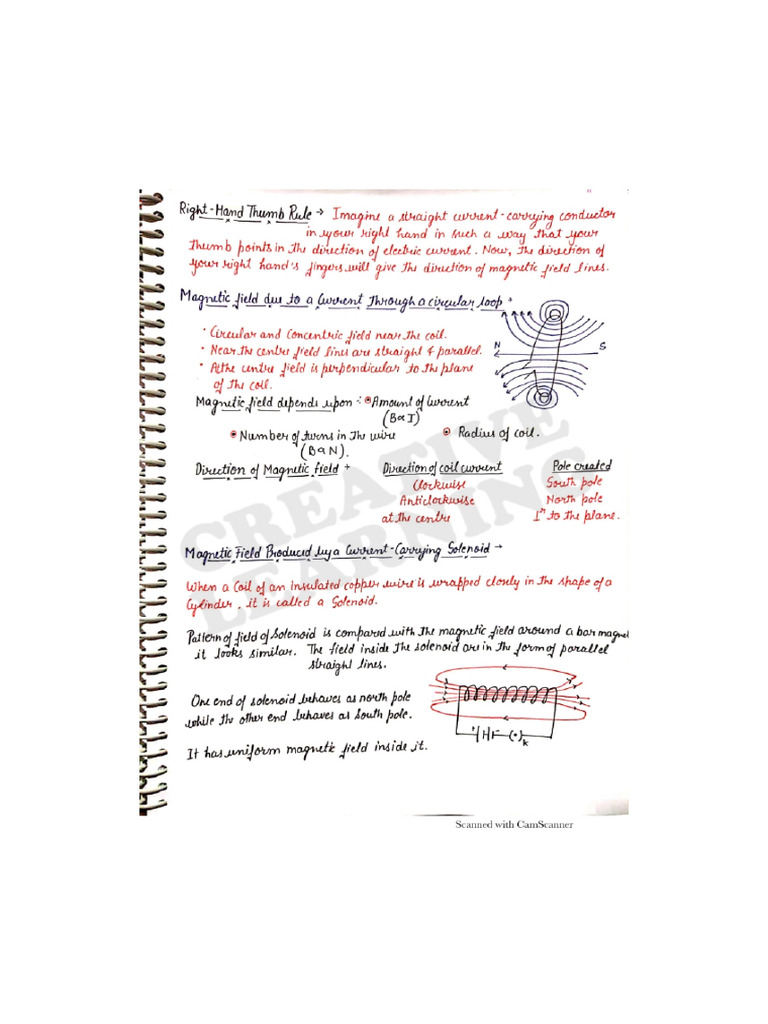 Right-Hand Thumb Rule → Imagine a straight current-carrying conductor
in your right hand in such a way that your
thumb points in the direction of electric current. Now, the direction of
your right hand's fingers will give the direction of magnetic field lines.
Magnetic field due to a Current Through a circular loop →
• Circular and Concentric field near the coil.
• Near the centre field lines are straight & parallel.
• At the centre field is perpendicular to the plane
of the coil.
N S
Magnetic field depends upon :- Amount of Current
(B∝I)
Number of turns in the wire Radius of coil.
(B∝N).
Direction of Magnetic Field → Direction of coil current Pole created
Clockwise South pole
Anticlockwise North pole
at the centre Iʳ to the plane.
CREATIVE
LEARNING
Magnetic Field Produced by a Current-Carrying Solenoid →
When a Coil of an insulated copper wire is wrapped closely in the shape of a
Cylinder, it is called a Solenoid.
Pattern of field of Solenoid is compared with the magnetic field around a bar magnet
it looks similar. The field inside the solenoid are in the form of parallel
straight lines.
One end of solenoid behaves as north pole
while the other end behaves as South pole.
It has uniform magnetic field inside it.
K
Scanned with CamScanner